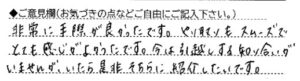 ◆ご意見欄(お気づきの点などご自由にご記入下さい。)
非常に手際が良かったです。やりとりもスムーズで
とても感じが良かったです。今は引越しする知り合いが
いませんが、いたら是非そちらに紹介したいです。